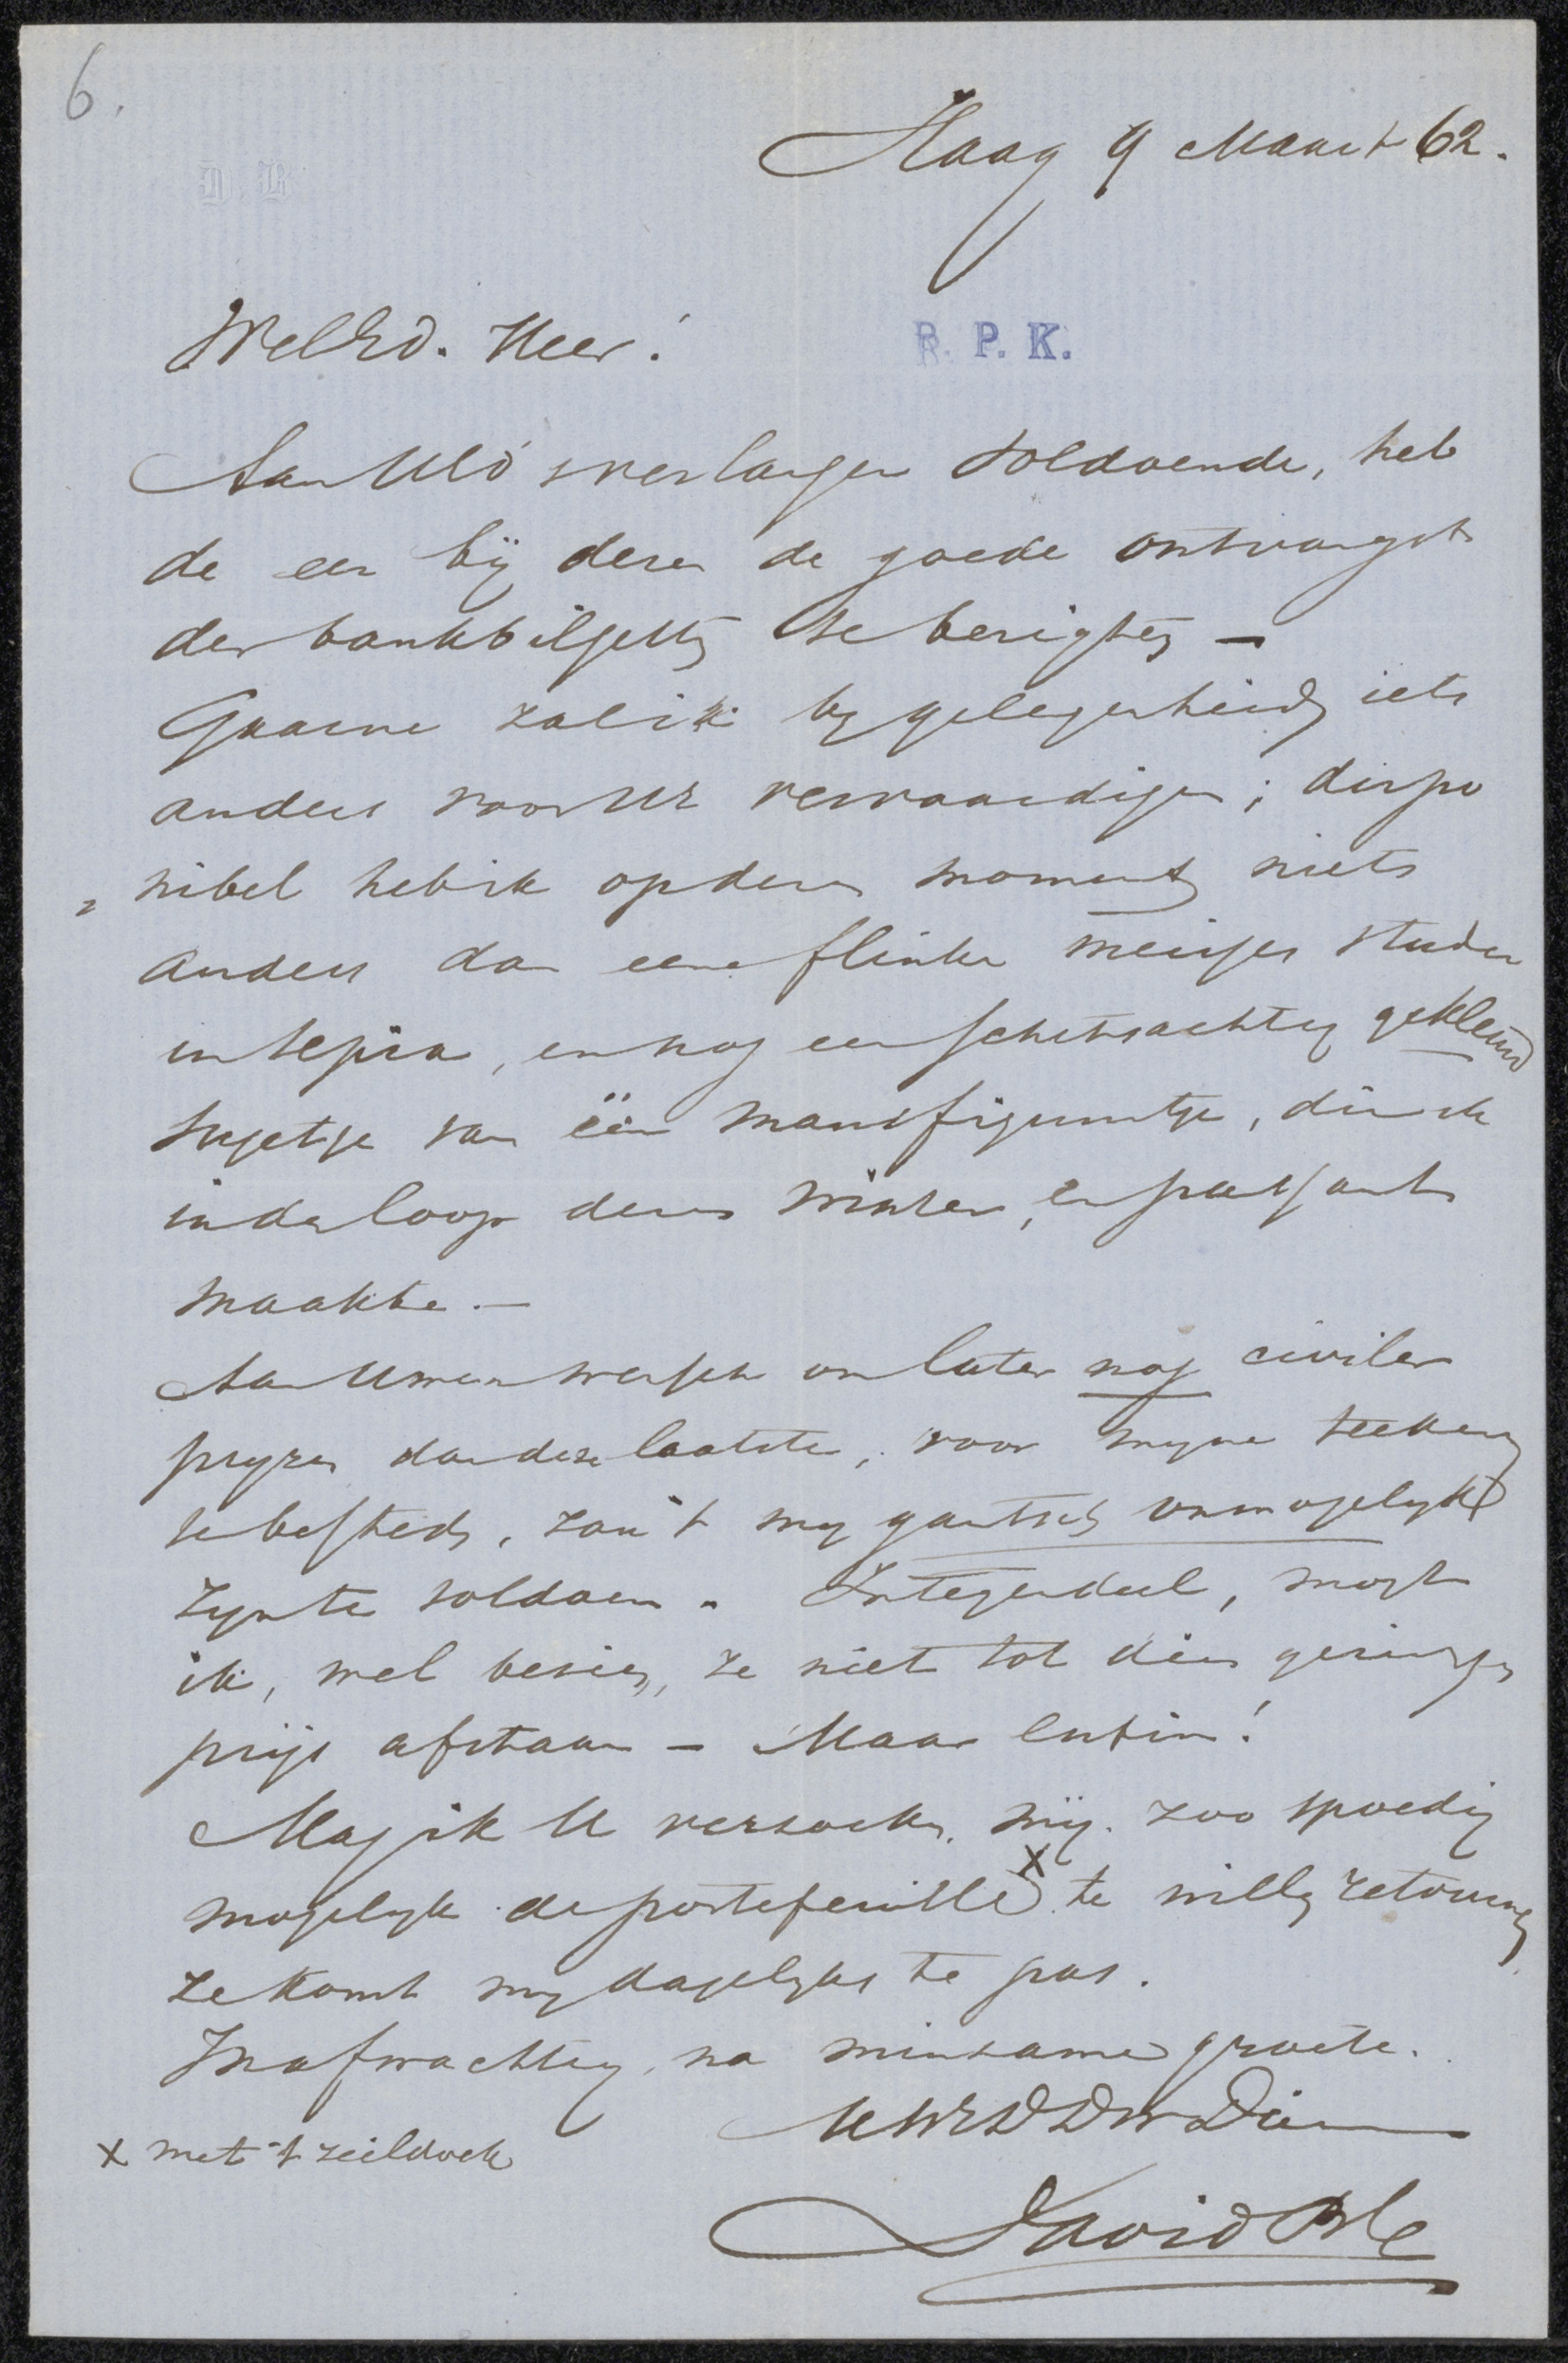 6.
Haag 9 Maart 62.
D. B
WelEd. Heer!
R. P. K.
Aan UEd's verlangen voldoende, heb
de eer bij dezen de goede ontvangst
der bankbiljetten te berigten —
Gaarne zal ik by gelegenheid iets
anders voor UE vervaardigen; dispo
nibel heb ik op dezen moment niets
anders dan eene flinke meisjes studie
in sepia, en nog een schetsachtig gekleurd
sujetje van één mansfiguurtje, die ik
in den loop dezes winter, en passant
maakte. —
Aan Uwen wensch om later nog civieler
pryzen dan deze laatste, voor myne teekeng
te besteden, zou 't my gantsch onmogelyk
zyn te voldoen. Integendeel, mogt
ik, wel bezien, ze niet tot dien geringen
prijs afstaan — Maar enfin!
Mag ik U verzoeken, mij zoo spoedig
mogelyk de portefeuille x te willen retourn
ze komt my dagelyks te pas.
In afwachting, na minzame groete.
UWEDDWDien
x met 't zeildoek
David Bles